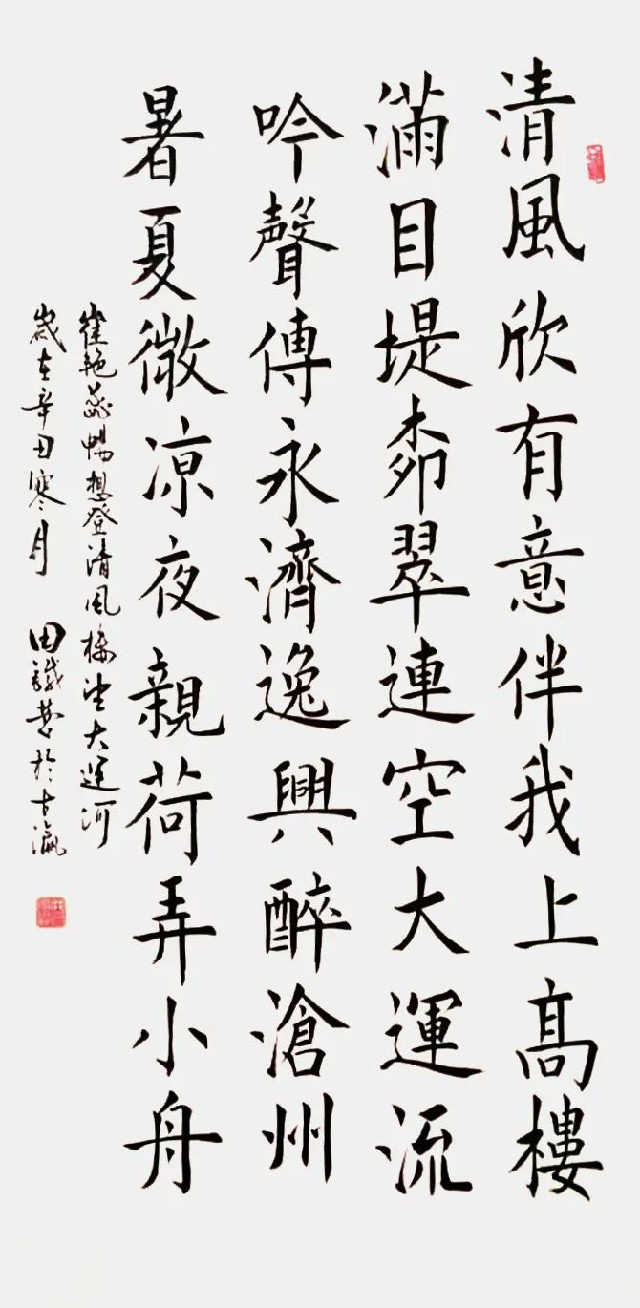 清風欣有意伴我上髙樓
滿目堤柳翠連空大運流
吟聲傳永濟逸興醉滄州
暑夏微凉夜親荷弄小舟
崔艳蕊暢想登清風樓望大運河
歲在辛丑寒月 田於古瀛